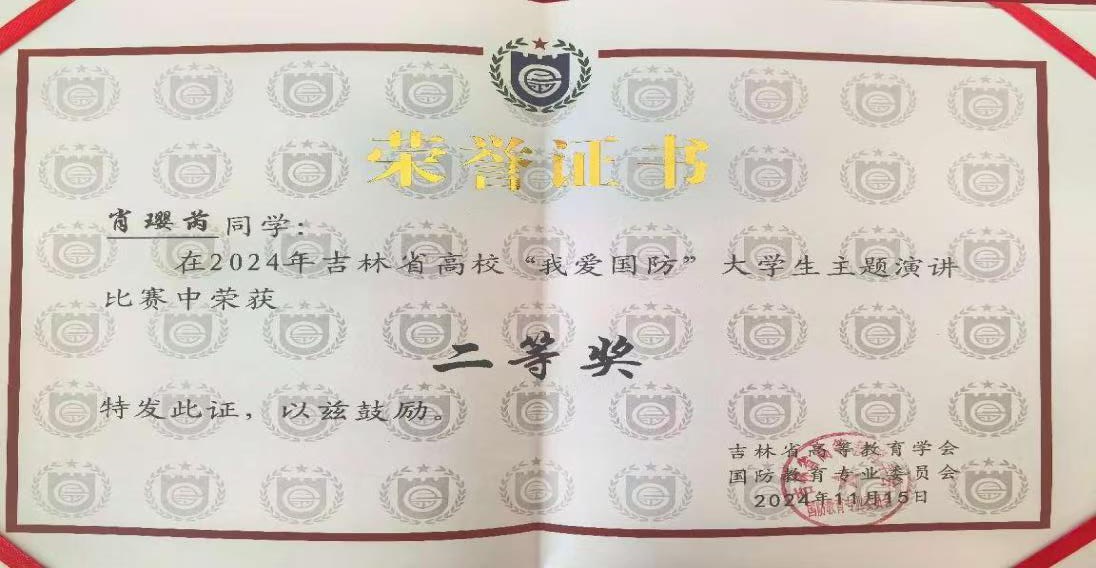 荣誉证书
肖璎芮同学：
在2024年吉林省高校“我爱国防”大学生主题演讲
比赛中荣获
二等奖
特发此证，以兹鼓励。
吉林省高等教育学会
国防教育专业委员会
2024年11月15日